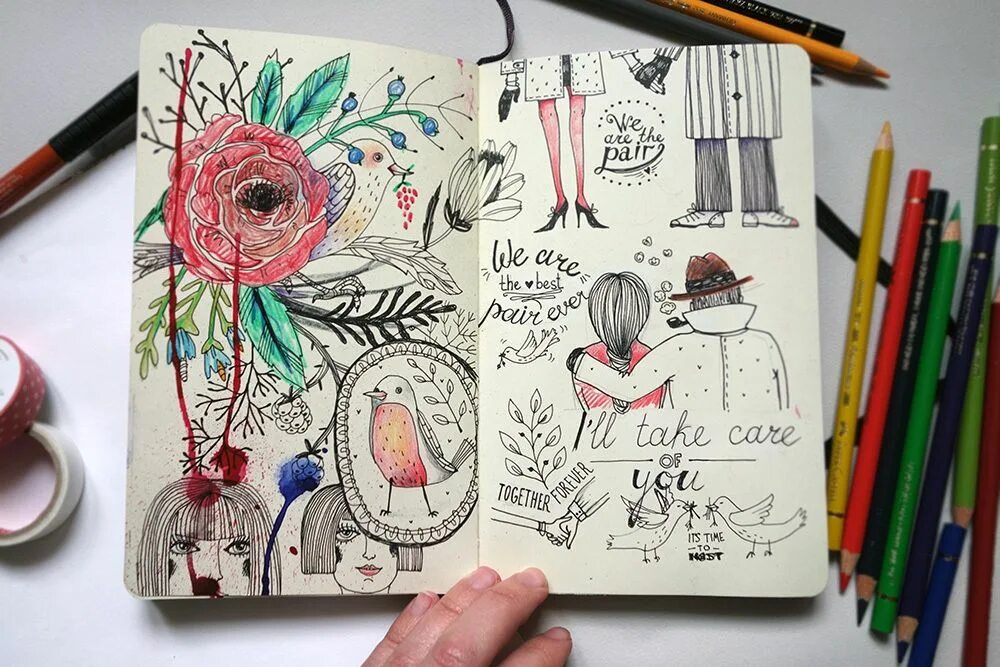 We
are the
pair
We are
the ♥ best
pair ever
I'll take care
OF
you
TOGETHER FOREVER
ITS TIME
- TO -
NEST